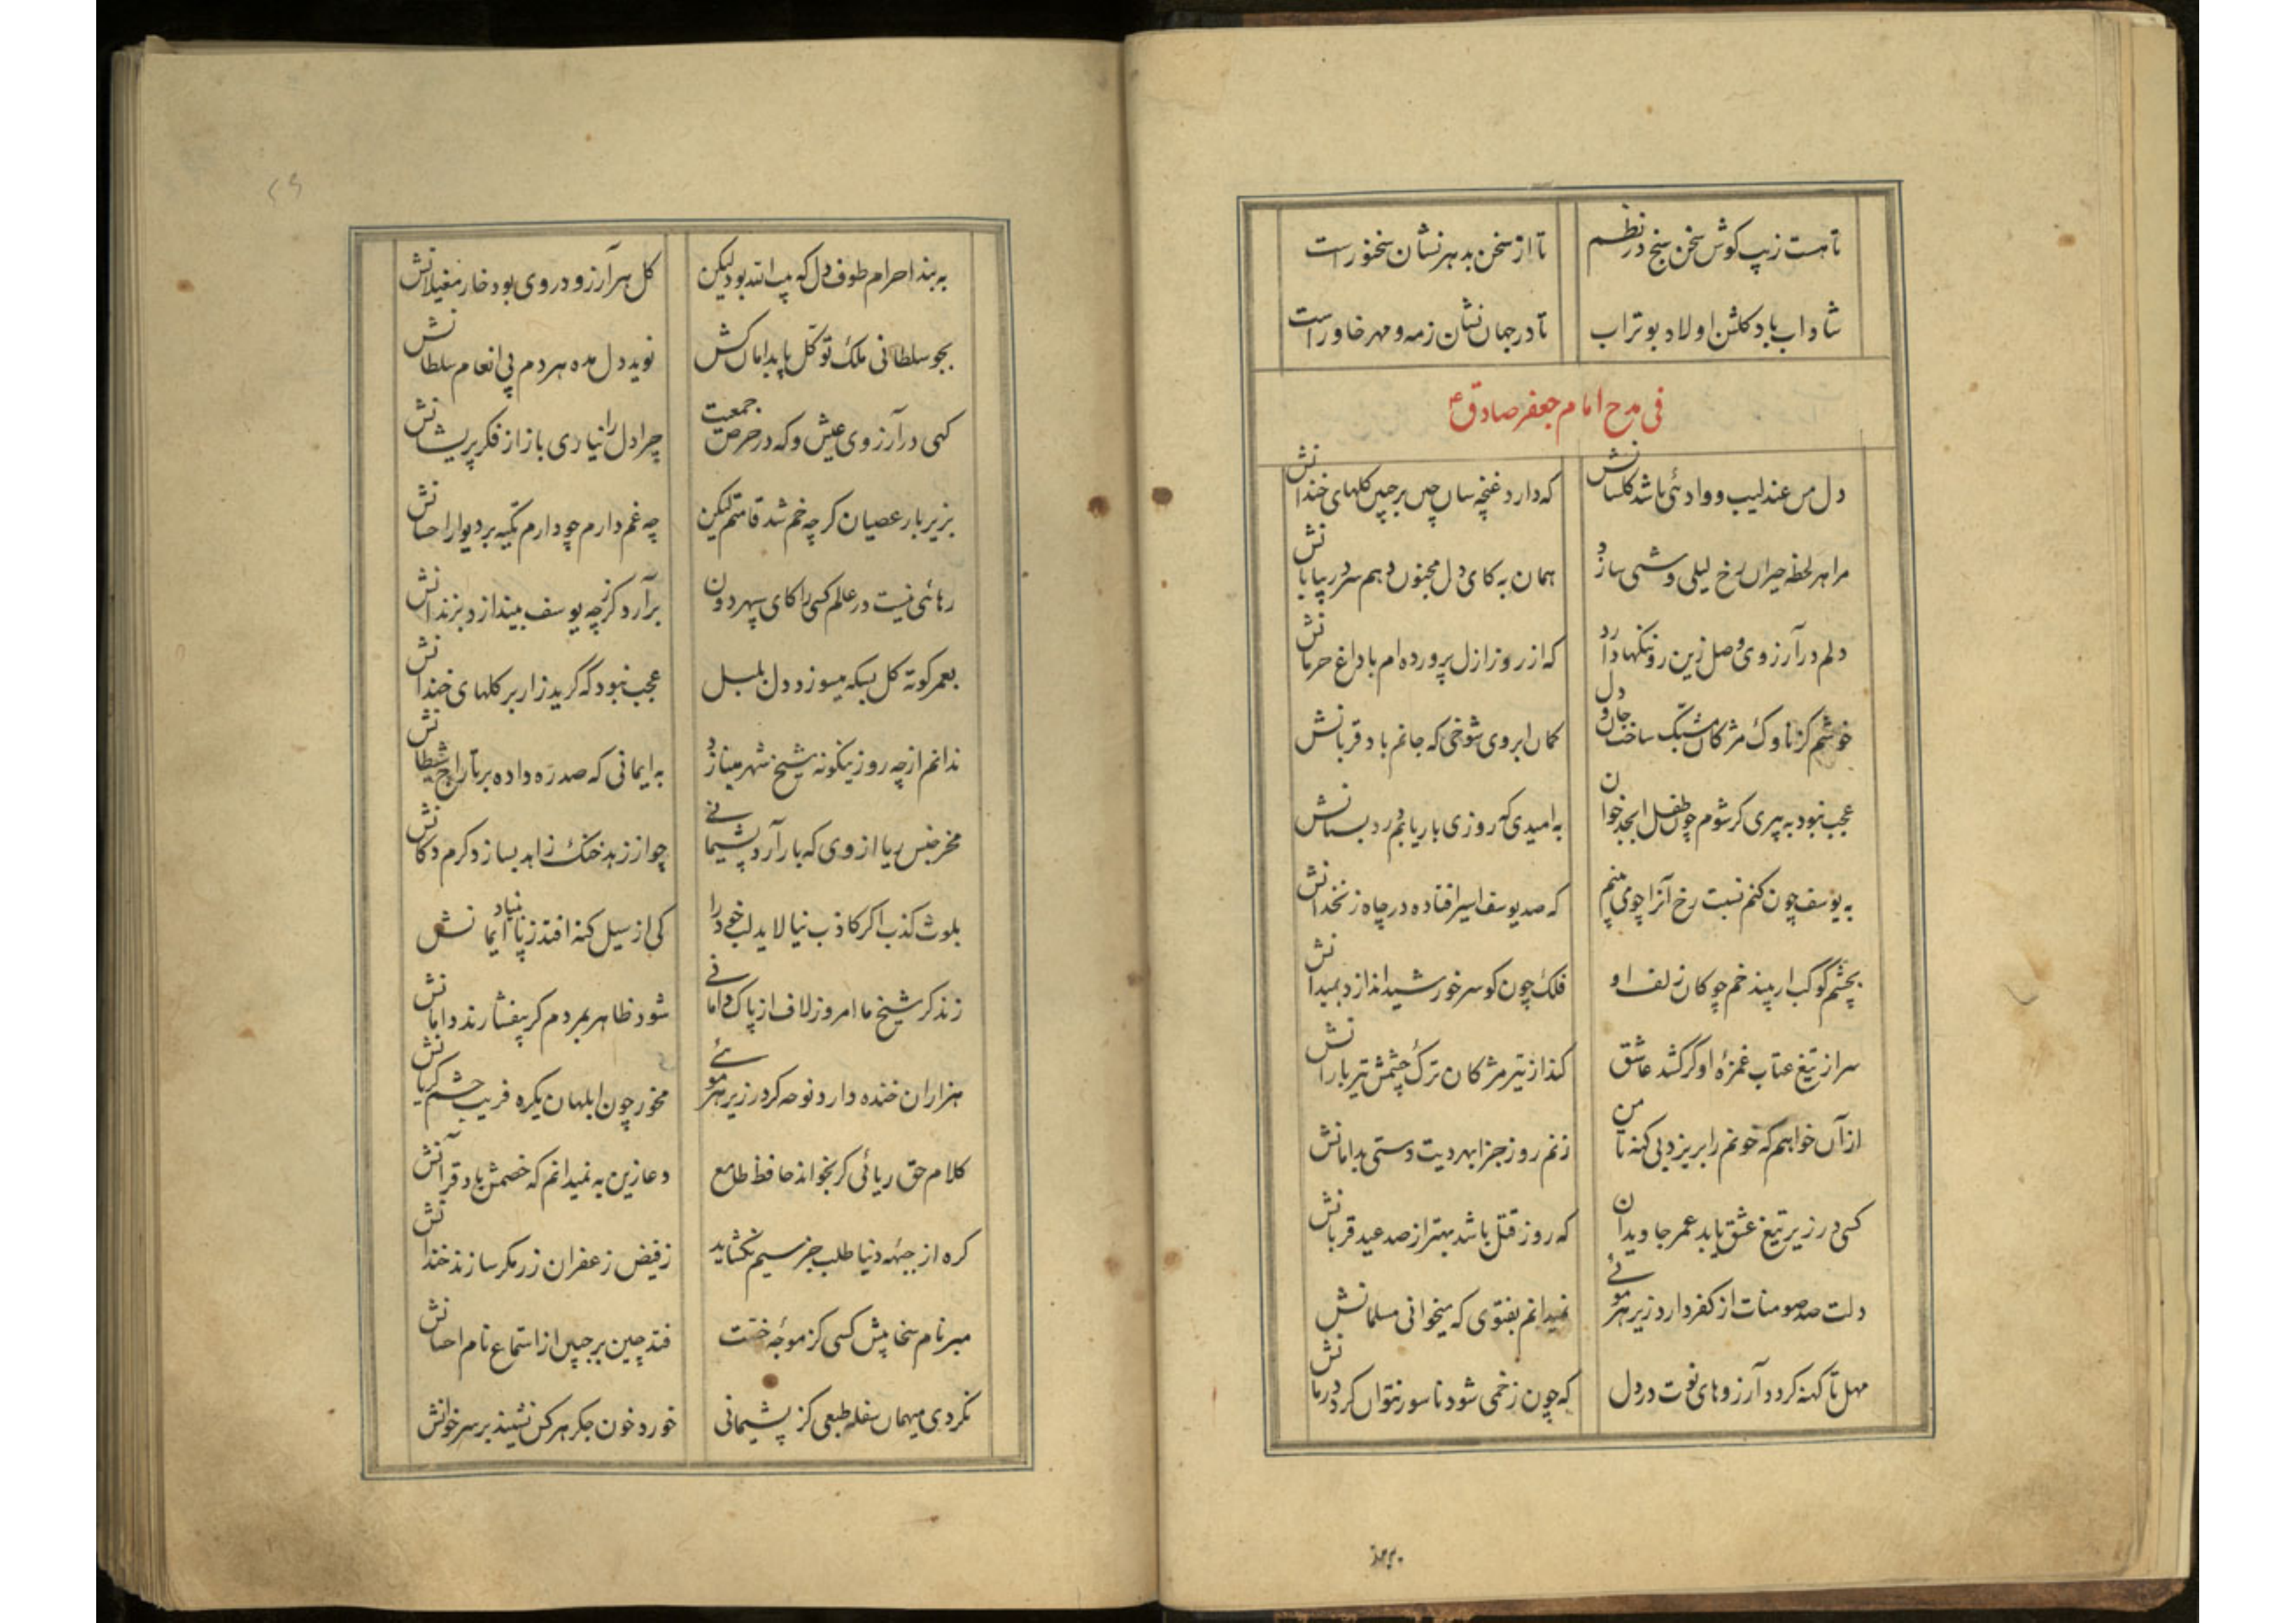 تا هست زیب کوش سخن سنج در نظم تا از سخن بدهر نشان سخنور است
شاداب باد کلشن اولاد بوتراب تا در جهان نشان زمه و مهر خاور است
فی مدح امام جعفر صادق ع
دل من عندلیب و وادئی باشد کلستانش که دارد غنچه سان چین بر جبین کلهای خندانش
مرا هر لحظه حیران رخ لیلی وشی سازد همان به کای دل مجنون دهم سر در بیابانش
دلم در آرزوی وصل زین رو ننکها دارد که از روز ازل پرورده ام با داغ حرمانش
خوشم کز ناوک مژکان مشبک ساخت جان و دل کمان ابروی شوخی که جانم باد قربانش
عجب نبود به پیری کر شوم چون طفل ابجد خوان به امیدی که روزی بار یابم در دبستانش
به یوسف چون کنم نسبت رخ آنرا چو می بینم که صد یوسف اسیر افتاده در چاه زنخدانش
بچشم کوکب ار بیند خم چوکان زلف او فلک چون کو سر خورشید اندازد بمیدانش
سر از تیغ عتاب غمزهٔ او کر کشد عاشق کند از تیر مژکان ترک چشمش تیر بارانش
از آن خواهم که خونم را بریزد بی کنه تا من زنم روز جزا بهر دیت دستی بدامانش
کسی در زیر تیغ عشق یابد عمر جاویدان که روز قتل باشد بهتر از صد عید قربانش
دلت صد سومنات از کفر دارد زیر هر موئی نمیدانم بفتوی که میخوانی مسلمانش
مهل تا کهنه کردد آرزوهای نوت در دل که چون زخمی شود ناسور نتوان کرد درمانش
به بند
۲۹
به بند احرام طوف دل که بیت الله بود لیکن کل هر آرزو در وی بود خار مغیلانش
بجو سلطانی ملک توکل پا بدامان کش نوید دل مده هر دم پی انعام سلطانش
کهی در آرزوی عیش و که در حرص جمعیت چرا دل را نیاری باز از فکر پریشانش
بزیر بار عصیان کر چه خم شد قامتم لیکن چه غم دارم چو دارم تکیه بر دیوار احسانش
رهائی نیست در عالم کسی را کای سپهر دون برآرد کر ز چه یوسف بیندازد بزندانش
بعمر کوته کل بسکه میسوزد دل بلبل عجب نبود که کرید زار بر کلهای خندانش
ندانم از چه رو زینکونه شیخ شهر مینازد به ایمانی که صد ره داده بر تاراج شیطانش
مخر جنس ریا از وی که بار آرد پشیمانی چو از زهد خنک زاهد بسازد کرم دکانش
بلوث کذب اکر کاذب نیالاید لب خود را کی از سیل کنه افتد ز پا بنیاد ایمانش
زند کر شیخ ما امروز لاف از پاک دامانی شود ظاهر بمردم کر بیفشارند دامانش
هزاران خنده دارد نوحه کر در زیر هر موئی مخور چون ابلهان یکره فریب چشم کریانش
کلام حق ریائی کر بخواند حافظ طامع دعا زین به نمیدانم که خصمش باد قرآنش
کره از جبهه دنیا طلب جز سیم نکشاید ز فیض زعفران زر مکر سازند خندانش
مبر نام سخا پیش کسی کز موجهٔ خست فتد چین بر جبین از استماع نام احسانش
نکردی میهمان سفله طبعی کز پشیمانی خورد خون جکر هر کس نشیند بر سر خوانش